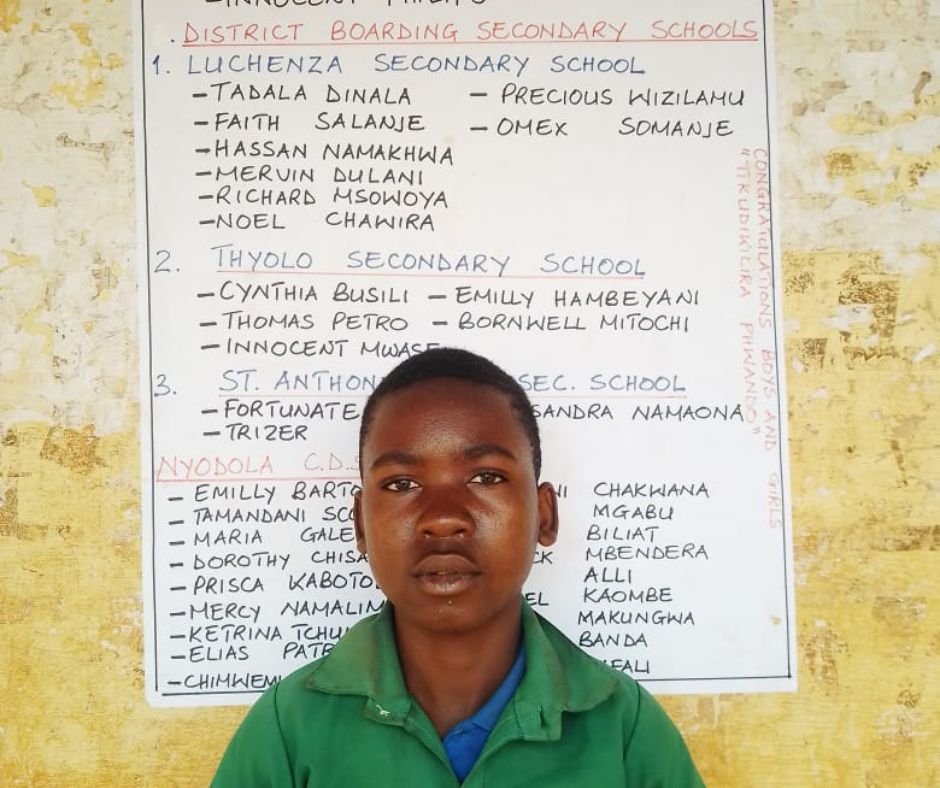 DISTRICT BOARDING SECONDARY SCHOOLS
1. LUCHENZA SECONDARY SCHOOL
- TADALA DINALA - PRECIOUS WIZILAMU
- FAITH SALANJE - OMEX SOMANJE
- HASSAN NAMAKHWA
- MERVIN DULANI
- RICHARD MSOWOYA
- NOEL CHAWIRA
2. THYOLO SECONDARY SCHOOL
- CYNTHIA BUSILI - EMILLY HAMBEYANI
- THOMAS PETRO - BORNWELL MITOCHI
- INNOCENT MWASE
3. ST. ANTHON SEC. SCHOOL
- FORTUNATE SANDRA NAMAONA
- TRIZER
NYODOLA C.D.S
- EMILLY BARTO NI CHAKWANA
- TAMANDANI SCO MGABU
- MARIA GALE BILIAT
- DOROTHY CHISA CK MBENDERA
- PRISCA KABOTO ALLI
- MERCY NAMALIM EL KAOMBE
- KETRINA TCHU MAKUNGWA
- ELIAS PATR BANDA
- CHIMWEM FALI
CONGRATULATIONS BOYS AND GIRLS
"TIKUDIKILIRA PHWANDO"